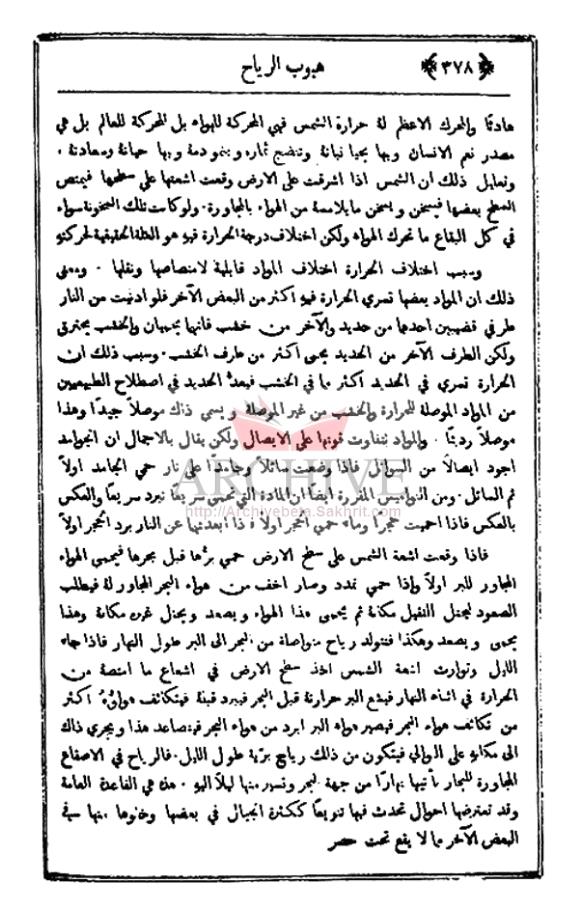 ﴿ ٣٧٨ ﴾ هبوب الرياح
هادئًا والمحرك الاعظم لهُ حرارة الشمس فهي المحركة للهواء بل المحركة للعالم بل هي
مصدر نعم الانسان وبها يحيا نباتهُ وتنضج ثماره وينمو دمهُ وبها حياتهُ وسعادتهُ ٠
وتعليل ذلك ان الشمس اذا اشرقت على الارض وقعت اشعتها على سطحها فيمتص
السطح بعضها فيسخن ويسخن ما يلامسهُ من الهواء بالمجاورة ٠ ولو كانت تلك السخونة سواء
في كل البقاع ما تحرك الهواء ولكن اختلاف درجة الحرارة فيهِ هو العلة الحقيقية لحركتهِ
وسبب اختلاف الحرارة اختلاف المواد قابلية لامتصاصها ونقلها ٠ ومعنى
ذلك ان المواد بعضها تسري الحرارة فيهِ اكثر من البعض الآخر فلو ادنيت من النار
طرفي قضيبين احدهما من حديد والآخر من خشب فانهما يحميان والخشب يحترق
ولكن الطرف الآخر من الحديد يحمى اكثر من طرف الخشب ٠ وسبب ذلك ان
الحرارة تسري في الحديد اكثر مما في الخشب فيعدُّ الحديد في اصطلاح الطبيعيين
من المواد الموصلة للحرارة والخشب من غير الموصلة ويسمى ذاك موصلاً جيدًا وهذا
موصلاً رديئًا ٠ والمواد تتفاوت قوتها على الايصال ولكن يقال بالاجمال ان الجوامد
اجود ايصالاً من السوائل فاذا وضعت سائلاً وجامدًا على نار حمي الجامد اولاً
ثم السائل ٠ ومن النواميس المقررة ايضًا ان المادة التي تحمى سريعًا تبرد سريعًا والعكس
بالعكس فاذا احميت حجرًا وماء حمي الحجر اولاً واذا ابعدتها عن النار برد الحجر اولاً
فاذا وقعت اشعة الشمس على سطح الارض حمي برُّها قبل بحرها فيحمى الهواء
المجاور للبر اولاً واذا حمي تمدد وصار اخف من هواء البحر المجاور لهُ فيطلب
الصعود ليحتل الثقيل مكانهُ ثم يحمى هذا الهواء ويصعد ويحتل غيره مكانهُ وهذا
يحمى ويصعد وهكذا فتتولد رياح متواصلة من البحر الى البر طول النهار فاذا جاء
الليل وتوارت اشعة الشمس اخذ سطح الارض في اشعاع ما امتصهُ من
الحرارة في اثناء النهار فيشع البر حرارتهُ قبل البحر فيبرد قبلهُ فيتكاثف هواؤهُ اكثر
من تكاثف هواء البحر فيصير هواء البر ابرد من هواء البحر فيتصاعد هذا ويجري ذاك
الى مكانهِ على التوالي فيتكون من ذلك رياح برّية طول الليل ٠ فالرياح في الاصقاع
المجاورة للبحار تأتيها نهارًا من جهة البحر وتسير منها ليلاً اليهِ ٠ هذه هي القاعدة العامة
وقد تعترضها احوال تحدث فيها تنويعًا ككثرة الجبال في بعضها وخلوها منها في
البعض الآخر مما لا يقع تحت حصر
ARCHIVE
http://Archivebeta.Sakhrit.com